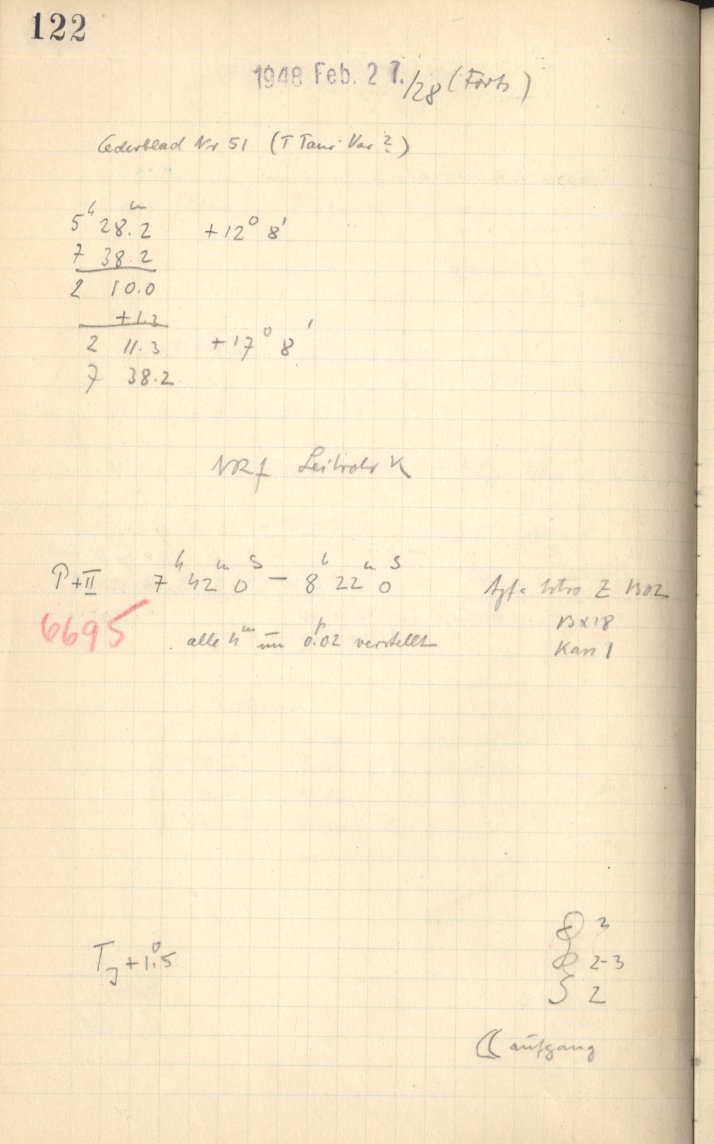 122
1948 Feb. 27./28 (Forts)
Cederblad Nr 51 (T Tauri Var?)
5ʰ 28.2ᵐ +12° 8'
7 38.2
2 10.0
+1.3
2 11.3 +17° 8'
7 38.2
Leitrohr K
P+II 7ʰ 42ᵐ 0ˢ – 8ʰ 22ᵐ 0ˢ Agfa Astro Z
6695 alle 4ᵐ um 0.02 verstellt
Kass 1
+1.°5
3
2-3
2
aufgang